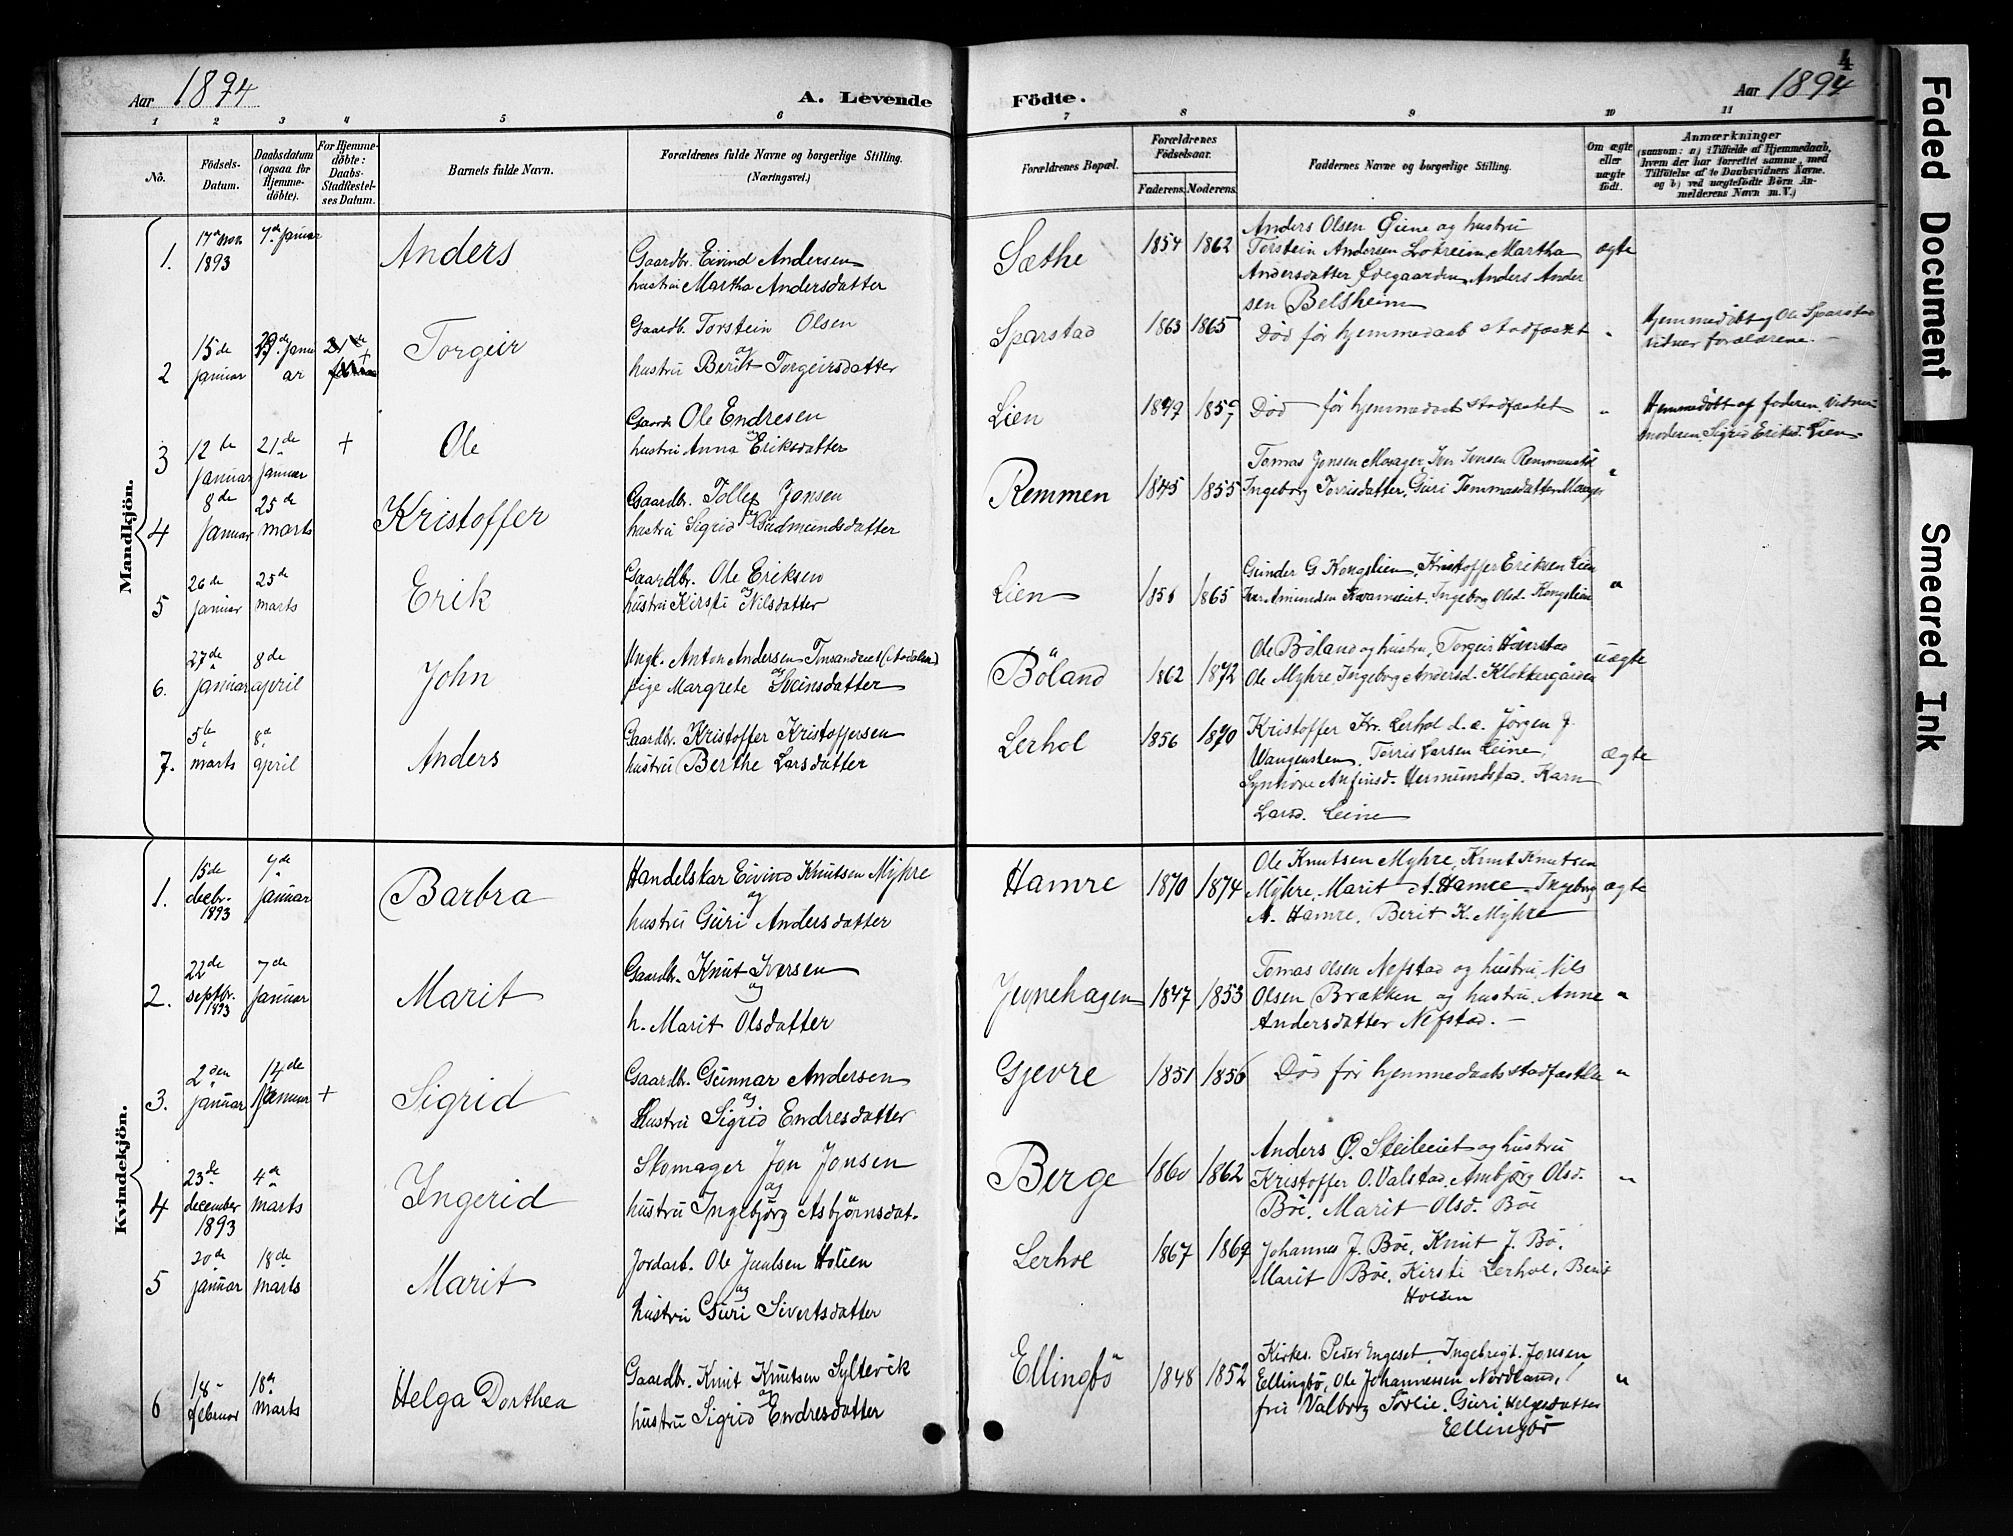 Aar 1894
A. Levende
Födte.
Aar 1894
4
1 2 3 4 5 6 7 8 9 10 11
No.
Födsels-Datum.
Daabsdatum (ogsaa for Hjemme-döbte).
For Hjemme-döbte: Daabs-Stadfæstel-ses Datum.
Barnets fulde Navn.
Forældrenes fulde Navne og borgerlige Stilling.
(Næringsvei.)
Forældrenes Bopæl.
Forældrenes Födselsaar.
Faderens.
Moderens.
Faddernes Navne og borgerlige Stilling.
Om ægte eller uægte födt.
Anmærkninger
(saasom: a) i Tilfælde af Hjemmedaab,
hvem der har forrettet samme, med
Tilföielse af to Daabsvidners Navne,
og b) ved uægtefödte Börn An-
melderens Navn m. V.)
Mandkjön.
1. 17de nov. 1893 7de januar
Anders
Gaardbr. Eivind Andersen
hustru Martha Andersdatter
Sæthe 1854 1862
Anders Olsen Geine og hustru
Torstein Andersen Lokreim, Martha
Andersdatter Ødegaarden, Anders Ander
sen Belsheim
ægte
2 15de januar
Torgeir
Gaardb. Torstein Olsen
og
hustru Berit Torgeirsdatter
Sparstad 1863 1865
Död för hjemmedaab stadfæstet "
Hjemmedöbt af Ole Sparstad
vidner forældrene.
3 12te januar 21de januar +
Ole
Gaardb. Ole Endresen
og
hustru Anna Eriksdatter
Lien
Död för hjemmedaab stadfæstet "
Hjemmedöbt af faderen, vidner
moderen, Sigrid Eriksd. Lien
4 8de januar 25de marts
Kristoffer
Gaardbr. Tollef Jonsen
og
hustru Sigrid Gudmundsdatter
Remmen 1845 1855
Tomas Jensen
Ingeborg Torrisdatter, Guri Tommasdatter
"
5 26de januar 25de marts
Erik
Gaardbr. Ole Eriksen
og
hustru Kirsti Nilsdatter
Lien 1865
Gunder G Kongslien, Kristoffer Eriksen Lien
Ingebog Olsd. Kongslien
"
6. 27de januar 8de april
John
Ungk. Anton Andersen
og
pige Margrete Sveinsdatter
Böland 1862 1872
Ole Böland og hustru, Torgeir
Ole Myhre, Ingeborg Andersd. Klokkergården
uægte
7. 5te marts 8de april
Anders
Gaardbr. Kristoffer Kristoffersen
hustru Berthe Larsdatter
Lerhol 1856 1870
Kristoffer Kr. Lerhol d. e. Jörgen J.
Wangensten, Torris Larsen Leine,
Synnöve Anfinsd. Hermundstad, Karn
Larsd. Leine
ægte
Kvindekjön.
1. 15de decbr. 1893 7de januar
Barbra
Handelskar Eivind Knutsen Myhre
og
hustru Guri Andersdatter
Hamre 1870 1874
Ole Knutsen Myhre, Knut Knutsen
Myhre, Marit A. Hamre, Ingeborg
A. Hamre, Berit K. Myhre
ægte
2. 22de septbr. 1893 7de januar
Marit
Gaardbr. Knut Iversen
og
h. Marit Olsdatter
Jevnehagen 1847 1853
Tomas Olsen Nefstad og hustru, Nils
Olsen Brækken og hustru, Anne
Andersdatter Nefstad.
"
3. 2den januar 14de januar +
Sigrid
Gaardbr. Gunnar Andersen
og
Hustru Sigrid Endresdatter
Gjevre 1851 1856
Död för hjemmedaab stadfæstelse "
4 23de december 1893 4de marts
Ingerid
Skomager Jon Jonsen
og
hustru Ingebjörg Asbjörnsdat.
Berge 1860 1862
Anders O. Steileiet og hustru
Kristoffer O. Valstad, Ambjörg Olsd.
Böe, Marit Olsd. Böe
"
5 20de januar 18de marts
Marit
Jordarb. Ole Juulsen Holien
og
hustru Guri Sivertsdatter
Lerhoe 1867 1869
Johannes J. Böe, Knut J. Bö,
Marit Böe, Kirsti Lerhoe, Berit
6 18 februar 18de marts
Helga Dorthea
Gaardbr. Knut Knutsen Syltevik
og
hustru Sigrid Endresdatter
Ellingbö 1848 1852
Kirkes. Peder Engeset, Ingebrigt Jonsen
Ellingbö, Ole Johannessen Nordland,
fru Valborg Sörlie, Guri Helgesdatter
Ellingbö
"
Faded Document
Smeared Ink